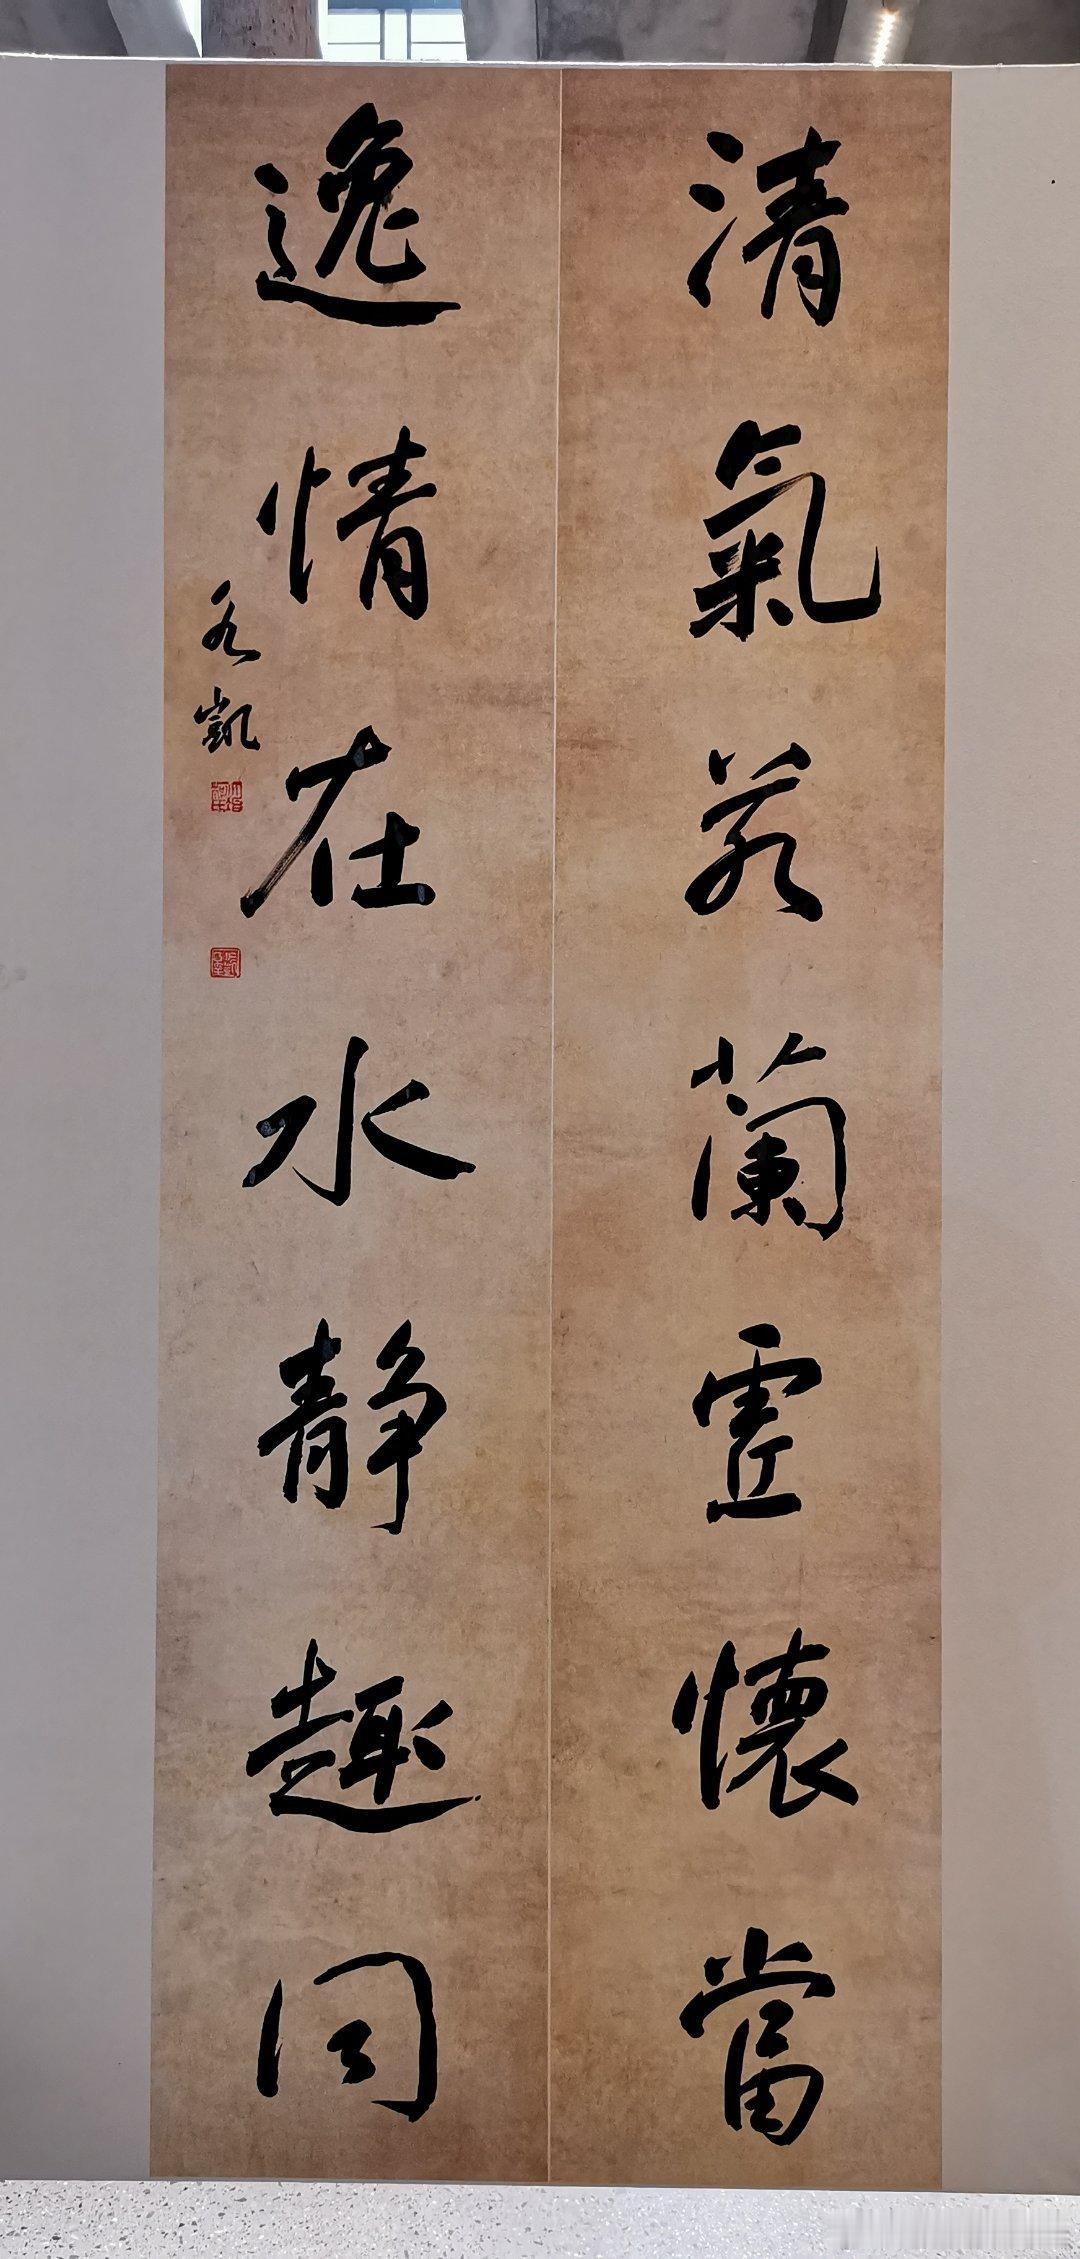 清氣若蘭虛懷當
逸情在水靜趣同